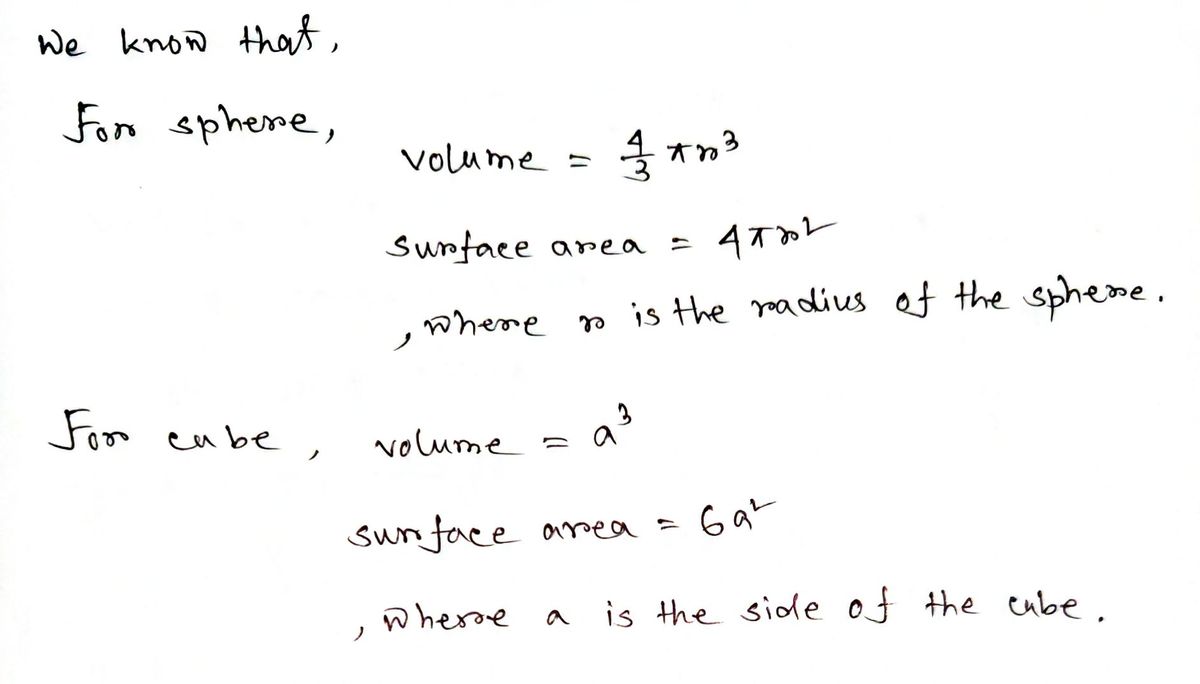 We know that,
For sphere,
volume = 4/3 πr³
surface area = 4πr²
, where r is the radius of the sphere.
For cube, volume = a³
surface area = 6a²
, where a is the side of the cube.